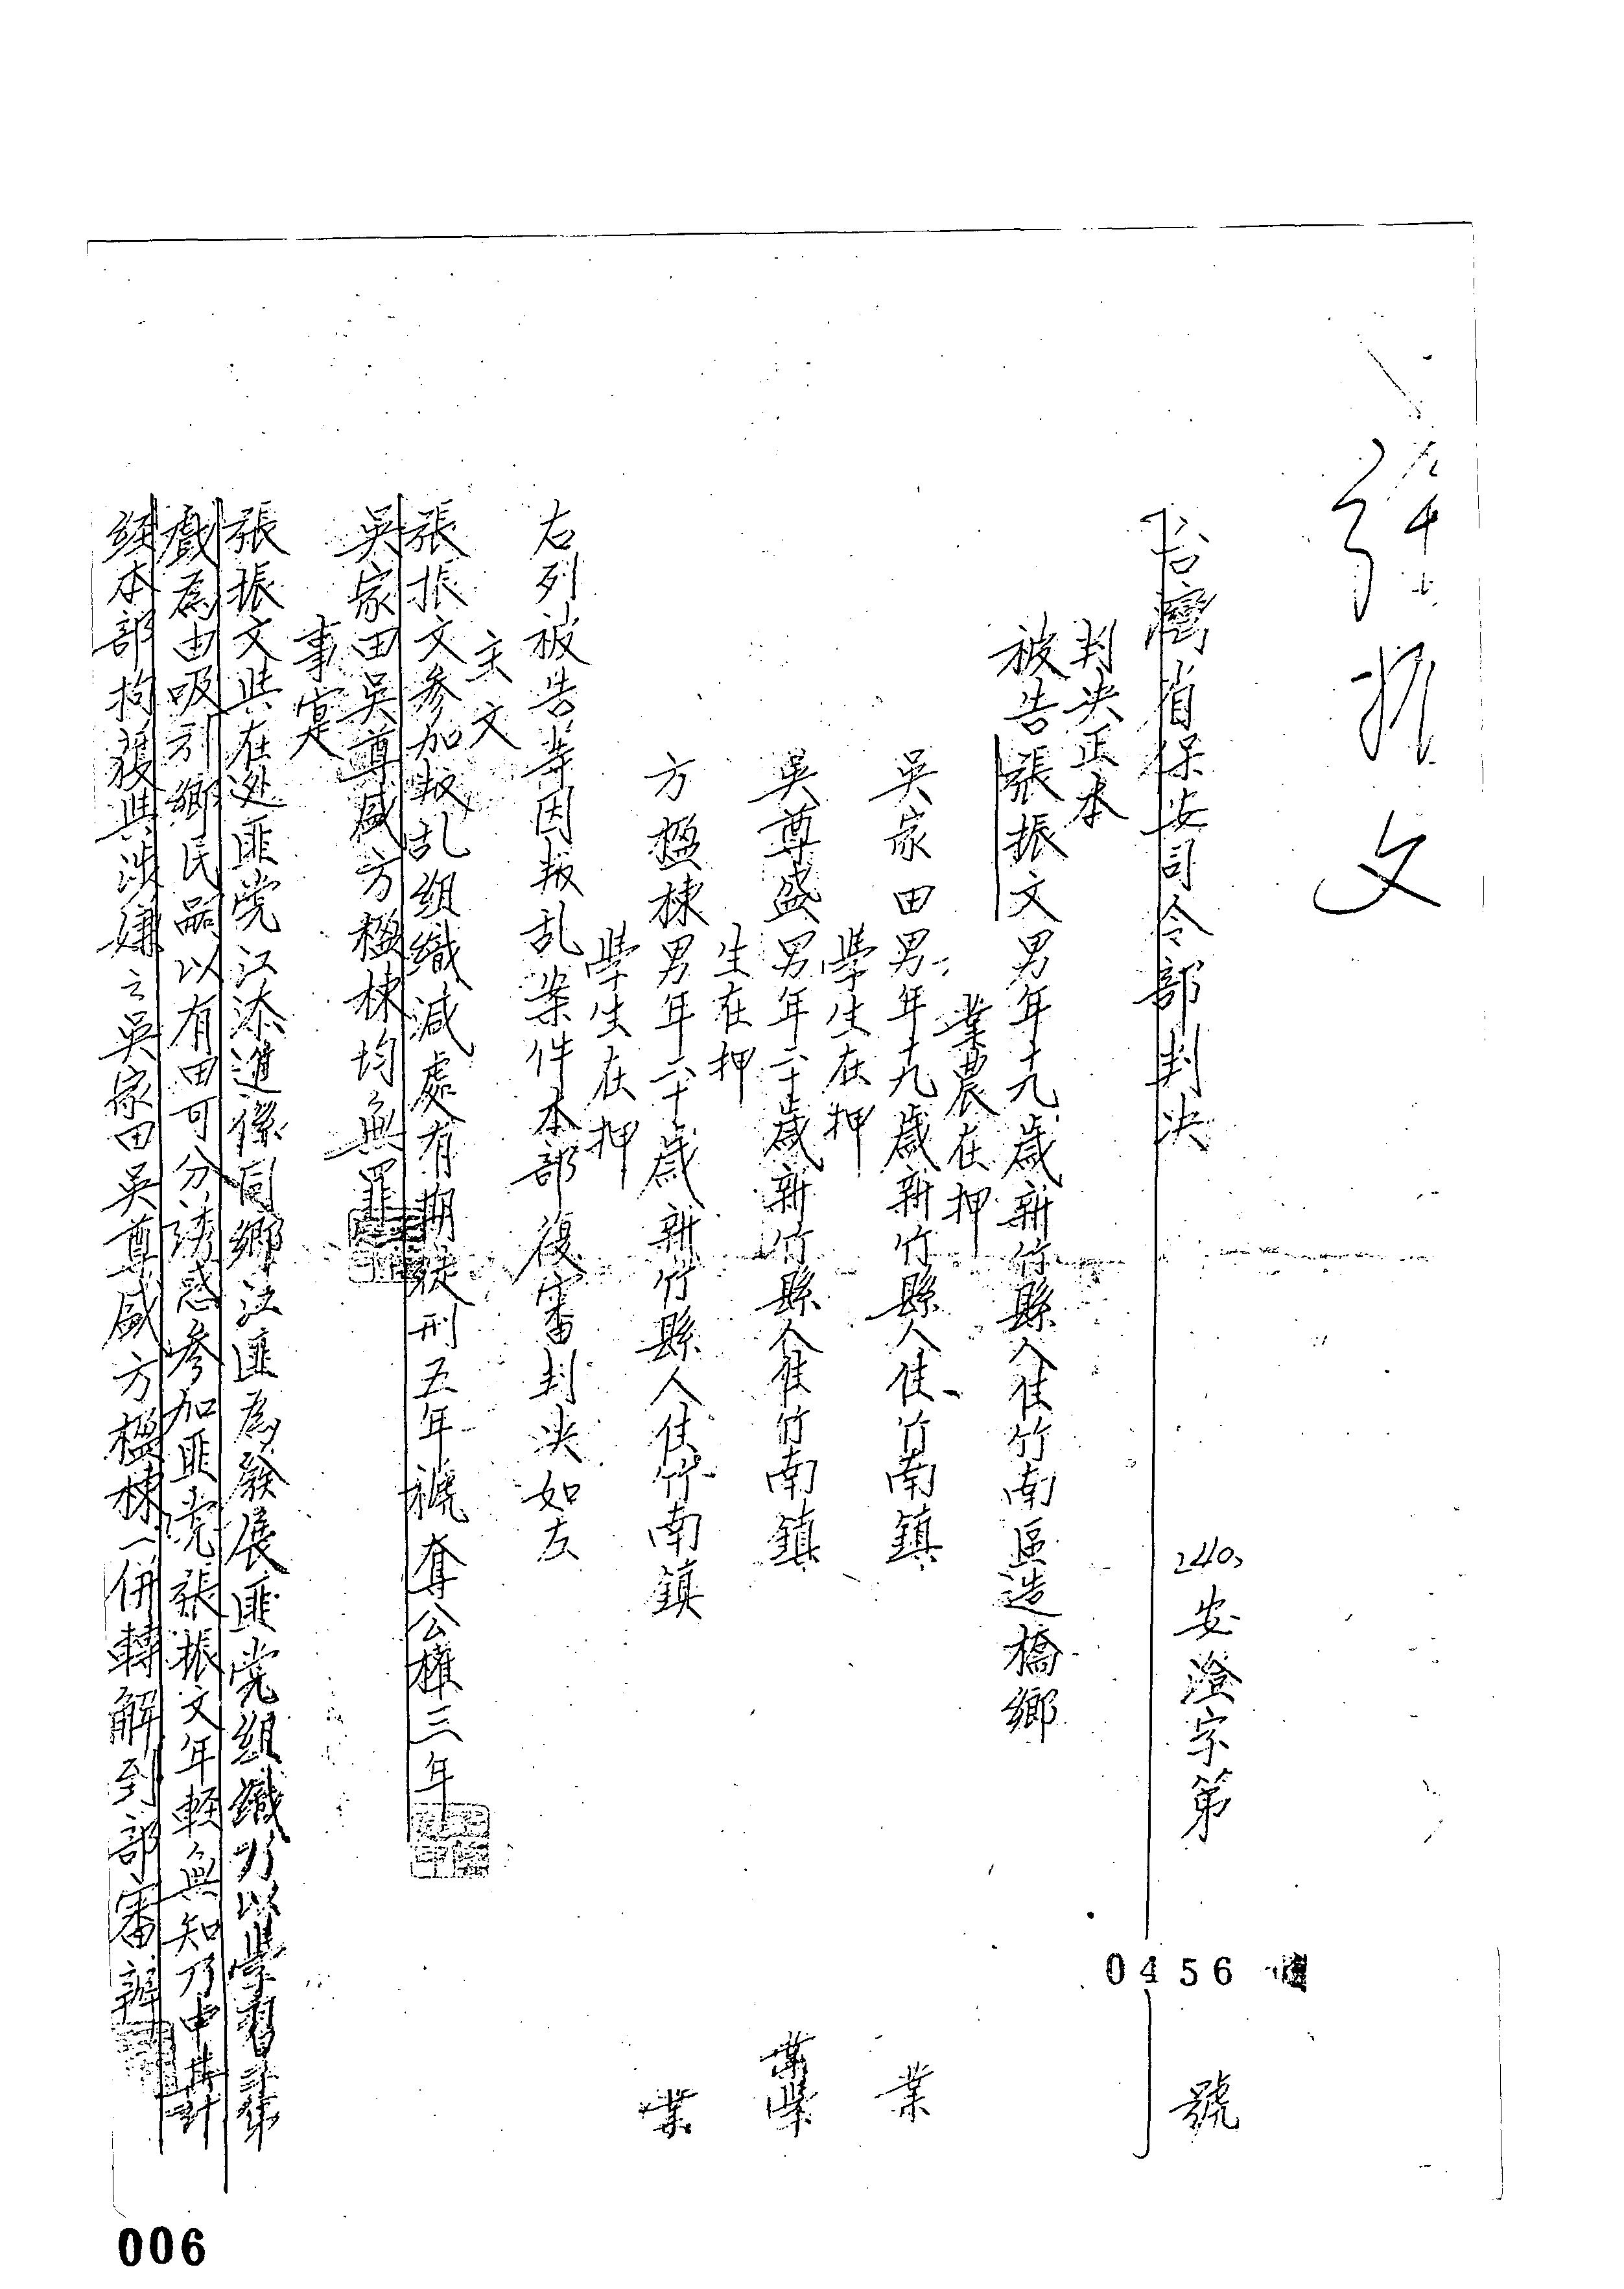 張振文
台灣省保安司令部判決
(40)安澄字第0456號
判決正本
被告張振文男年十九歲新竹縣人住竹南區造橋鄉
業農在押
吳家田男年十九歲新竹縣人住竹南鎮業
學生在押
吳尊盛男年二十歲新竹縣人住竹南鎮業學
生在押
方楹棟男年二十歲新竹縣人住竹南鎮業
學生在押
右列被告等因叛乱案件本部復審判决如左
主文
張振文參加叛乱組織減處有期徒刑五年褫奪公權三年
吳家田吳尊盛方楹棟均無罪
事實
張振文與在逃匪党江添進係同鄉江匪為發展匪党組織乃以學習
戲為由吸引鄉民嗣以有田可分誘惑參加匪党張振文年輕無知乃中其計
經本部拘獲與涉嫌之吳家田吳尊盛方楹棟一併轉解到部審辦
006